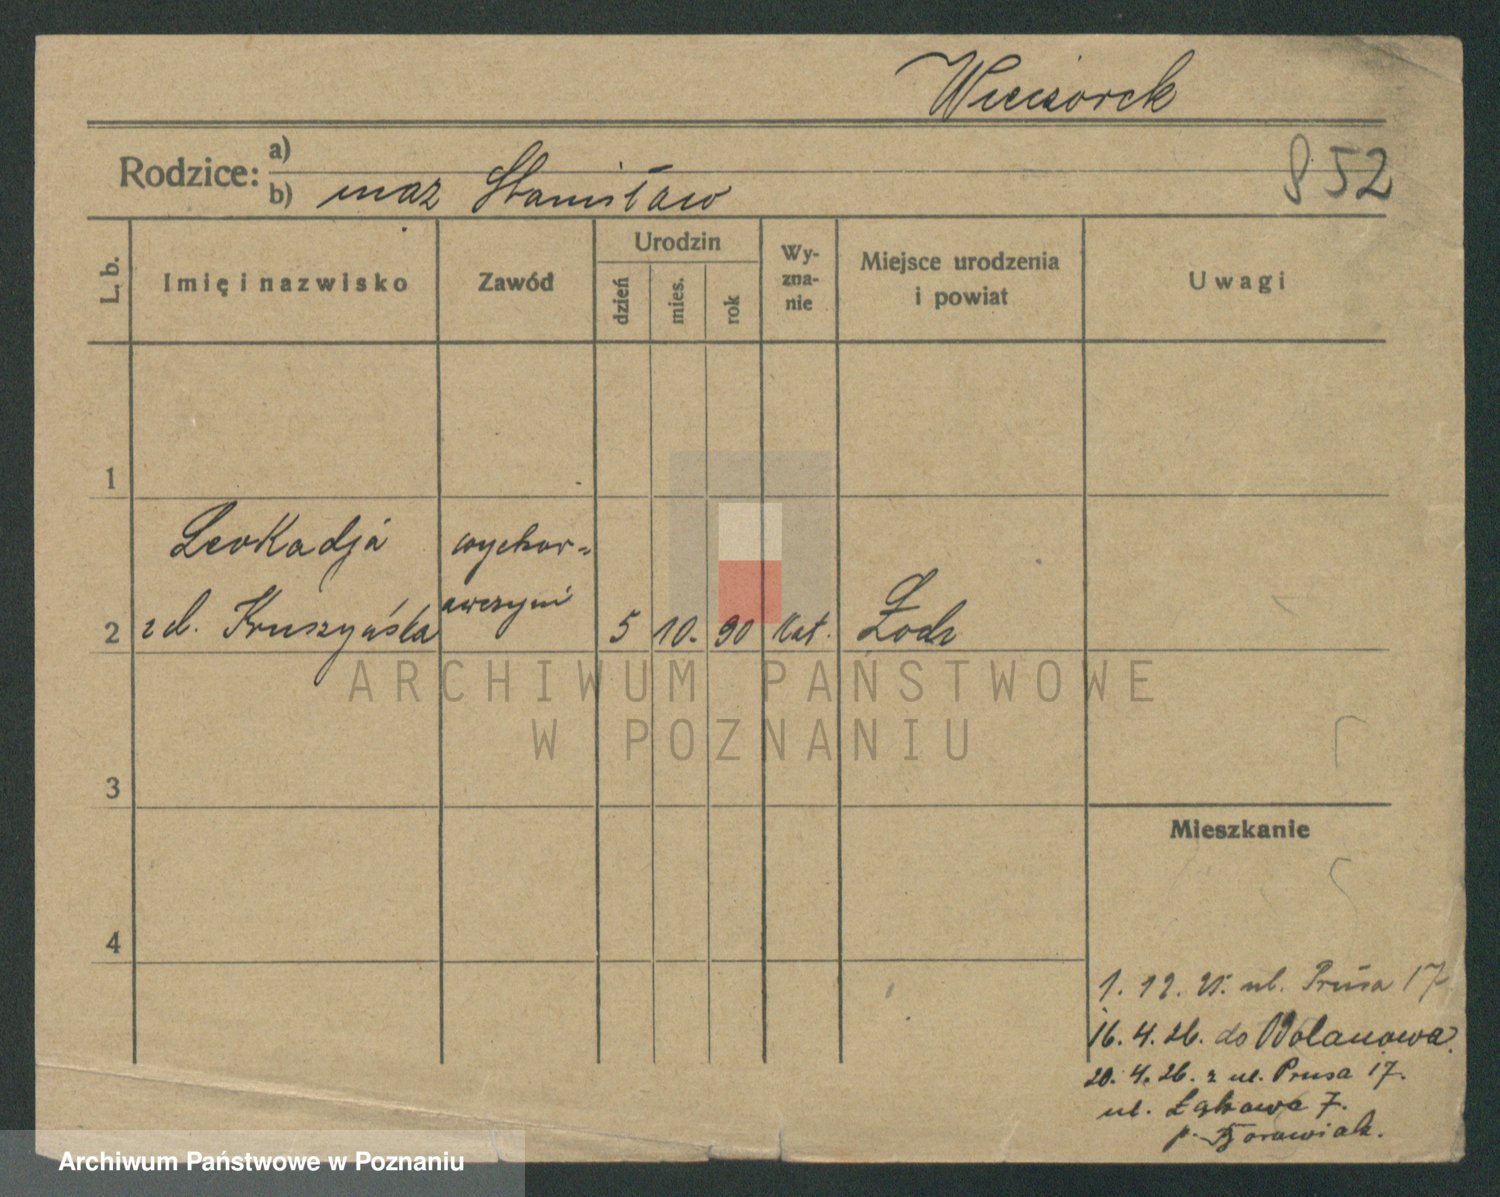 Wieczorek
852
Rodzice: a)
b) mąz Stanisław
L. b.
Imię i nazwisko
Zawód
Urodzin
dzień
mies.
rok
Wy-
zna-
nie
Miejsce urodzenia
i powiat
Uwagi
1
Leokadja
wychow-
2 z d. Kruszyńska
awczyni
5 10. 90 kat. Łodz
ARCHIWUM PAŃSTWOWE
W POZNANIU
3
Mieszkanie
4
1. 12. 25. ul. Prusa 17
16. 4. 26. do Wolanowa.
20. 4. 26. z ul. Prusa 17.
ul. Łąkowa 7.
p. Borowiak.
Archiwum Państwowe w Poznaniu